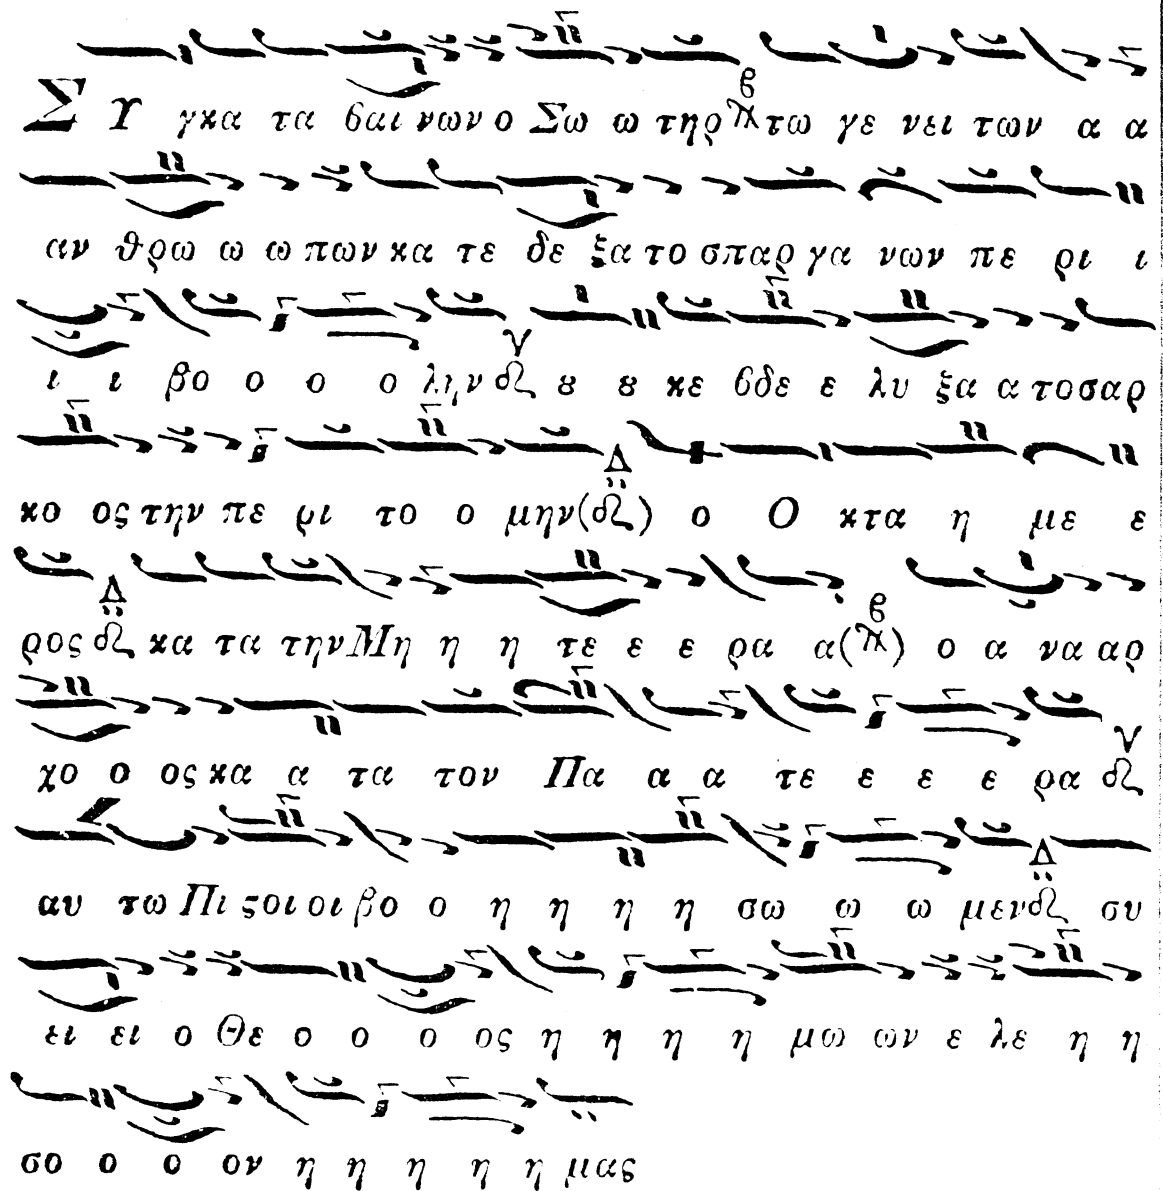 Συ γκα τα βαι νων ο Σω ω τηρ τω γε νει των α α
αν θρω ω ω πων κα τε δε ξα το σπαρ γα νων πε ρι ι
ι ι βο ο ο ο λην ȣ ȣ κε βδε ε λυ ξα α το σαρ
κο ος την πε ρι το ο μην ( ) ο Ο κτα η με ε
ρος κα τα την Μη η η τε ε ε ρα α ( ) ο α να αρ
χο ο ος κα α τα τον Πα α α τε ε ε ε ρα
αυ τω Πι ϛοι οι βο ο η η η η σω ω ω μεν συ
ει ει ο Θε ο ο ο ος η η η η μω ων ε λε η η
σο ο ο ον η η η η η μας